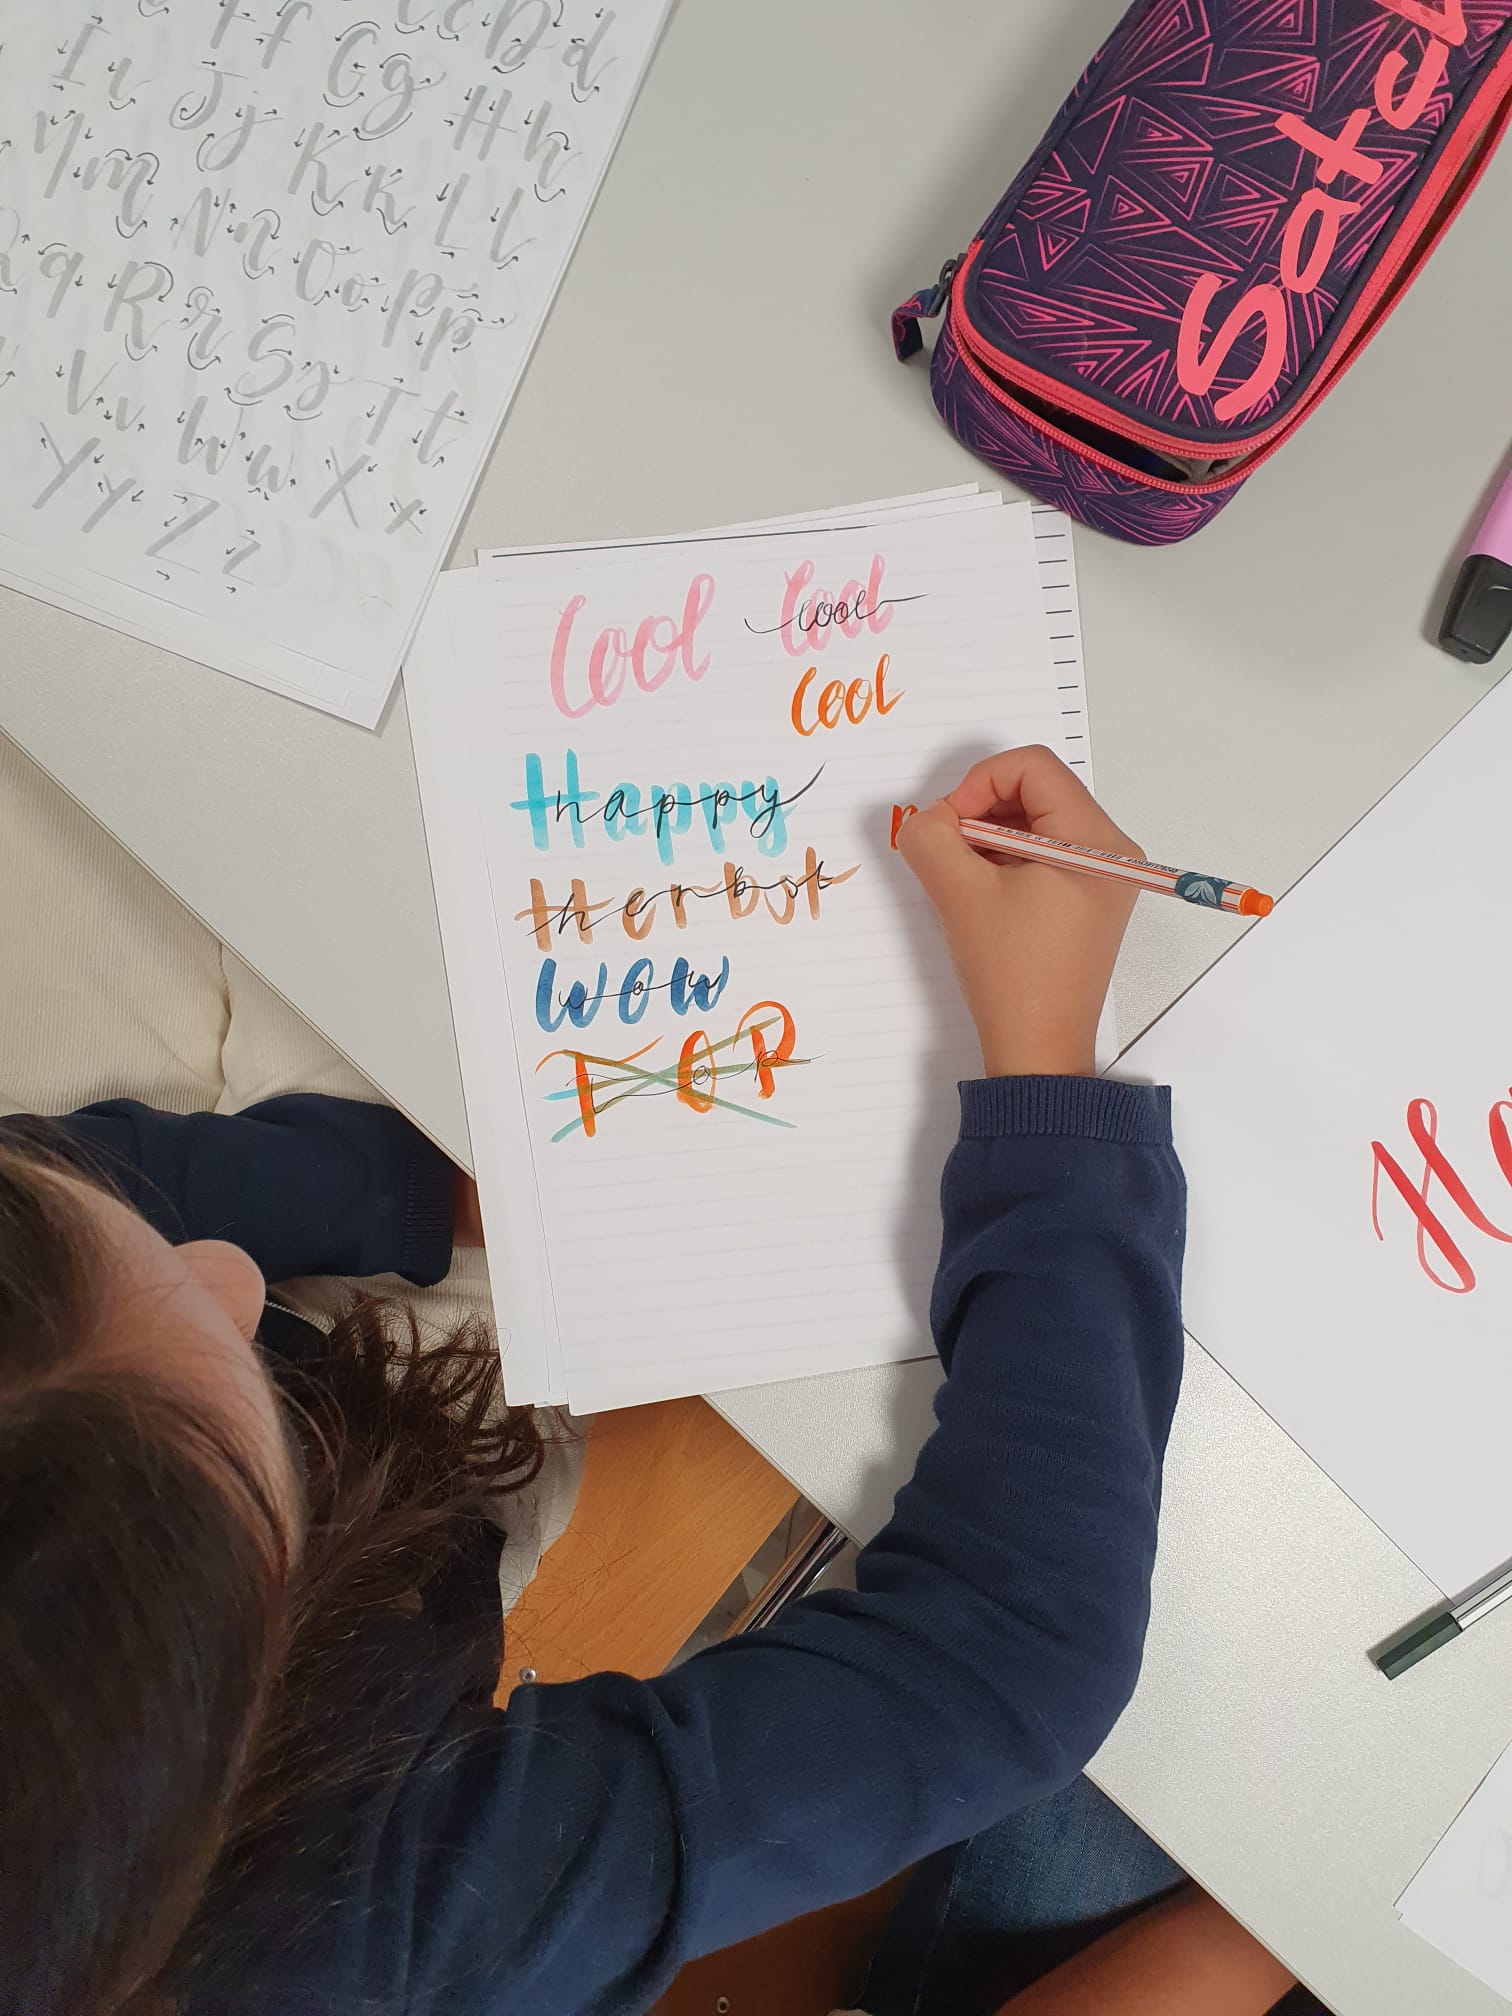 F f
C c D d
I i J j G g H h
M m K k
N n L l
q O o P p
R r S s T t
V v W w X x
Y y Z z
Satch
Cool Cool
cool
Cool
Happy
happy
Herbst
herbst
WOW
wow
TOP
Top